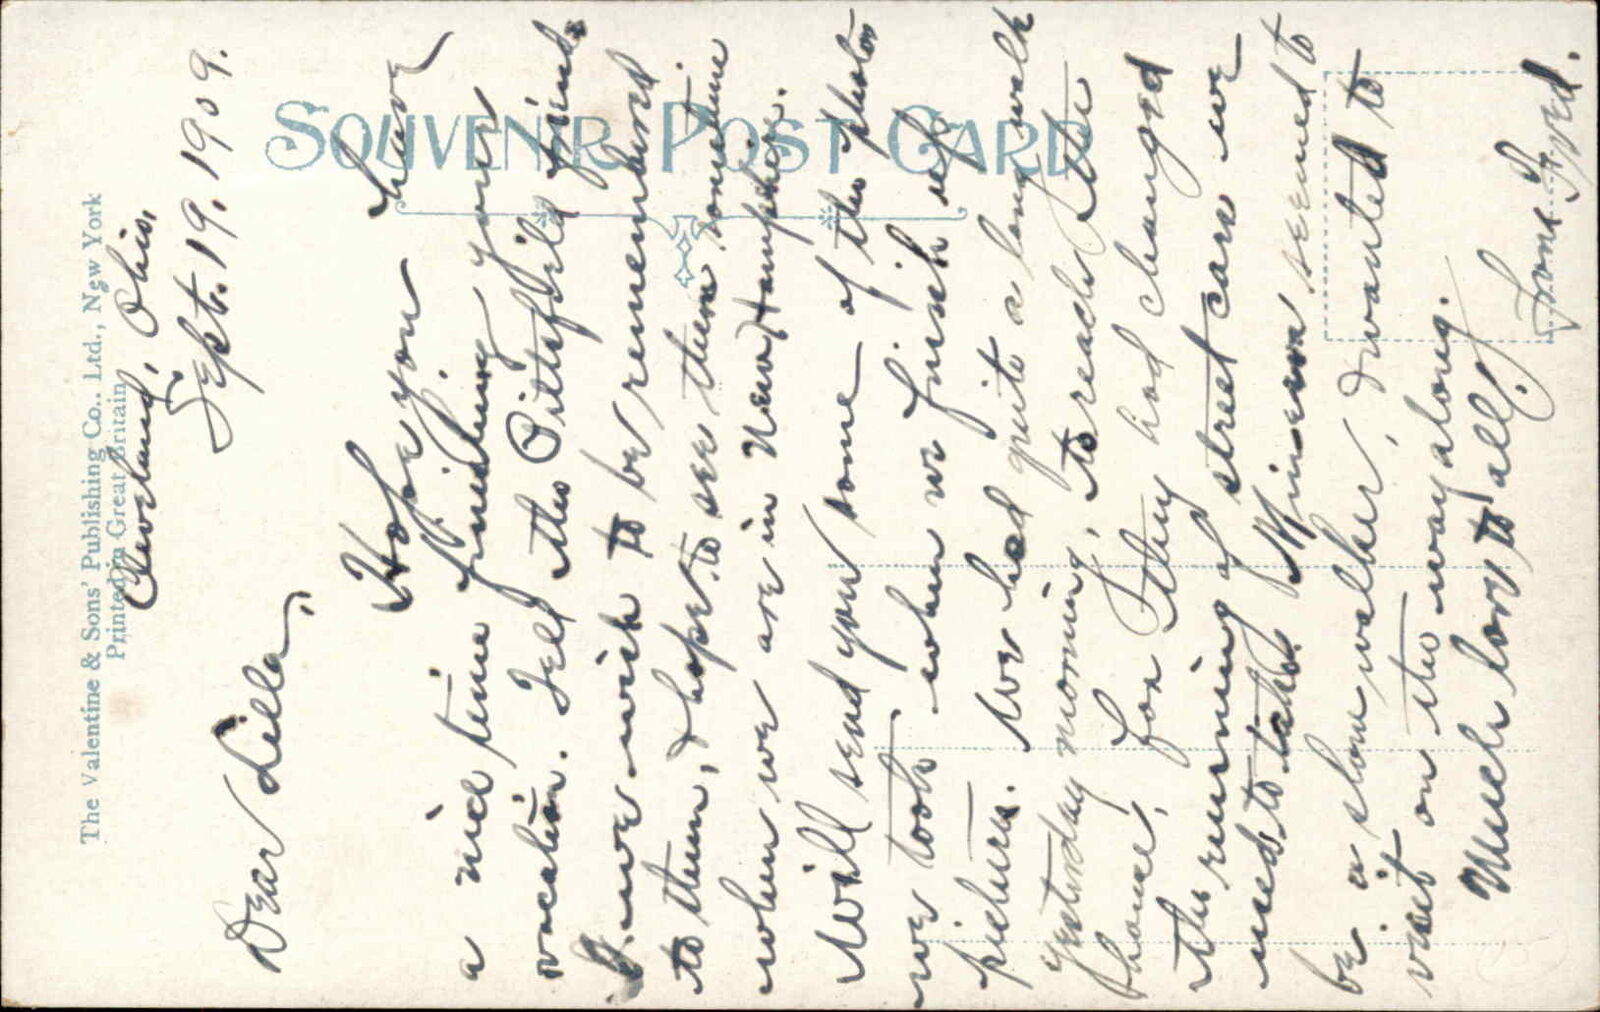 SOUVENIR POST CARD
The Valentine & Sons' Publishing Co., Ltd., New York
Printed in Great Britain
Cleveland, Ohio,
Sept. 19. 1909.
Dear Lilla,
Hope you have
a nice time finishing your
vacation. Tell the Pittsfield friends
we wish to be remembered
to them, I hope to see them sometime
when we are in New Hampshire.
Will send you some of the photos
we took when we finish up
pictures. We had quite a long walk
yesterday morning, to reach the
house, for they had changed
the running of street cars we
used to take. Minerva seemed to
be a slow walker, I wanted to
visit on the way along.
Much love to all,